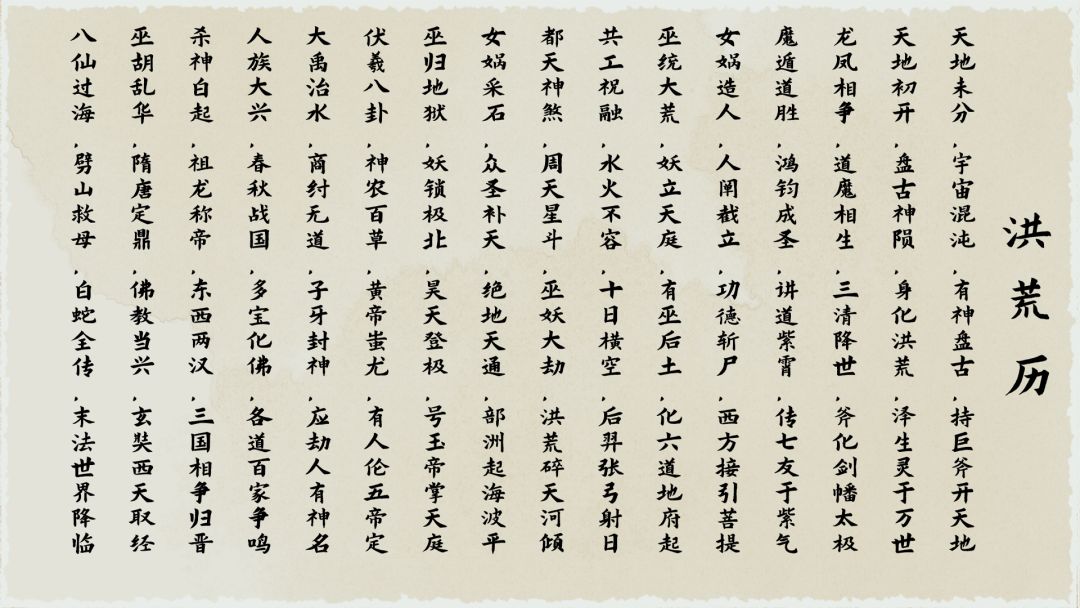 洪荒历
天地未分，宇宙混沌，有神盘古，持巨斧开天地
天地初开，盘古神陨，身化洪荒，泽生灵于万世
龙凤相争，道魔相生，三清降世，斧化剑幡太极
魔遁道胜，鸿钧成圣，讲道紫霄，传七友于紫气
女娲造人，人阐截立，功德斩尸，西方接引菩提
巫统大荒，妖立天庭，有巫后土，化六道地府起
共工祝融，水火不容，十日横空，后羿张弓射日
都天神煞，周天星斗，巫妖大劫，洪荒碎天河倾
女娲采石，众圣补天，绝地天通，部洲起海波平
巫归地狱，妖锁极北，昊天登极，号玉帝掌天庭
伏羲八卦，神农百草，黄帝蚩尤，有人伦五帝定
大禹治水，商纣无道，子牙封神，应劫人有神名
人族大兴，春秋战国，多宝化佛，各道百家争鸣
杀神白起，祖龙称帝，东西两汉，三国相争归晋
巫胡乱华，隋唐定鼎，佛教当兴，玄奘西天取经
八仙过海，劈山救母，白蛇全传，末法世界降临